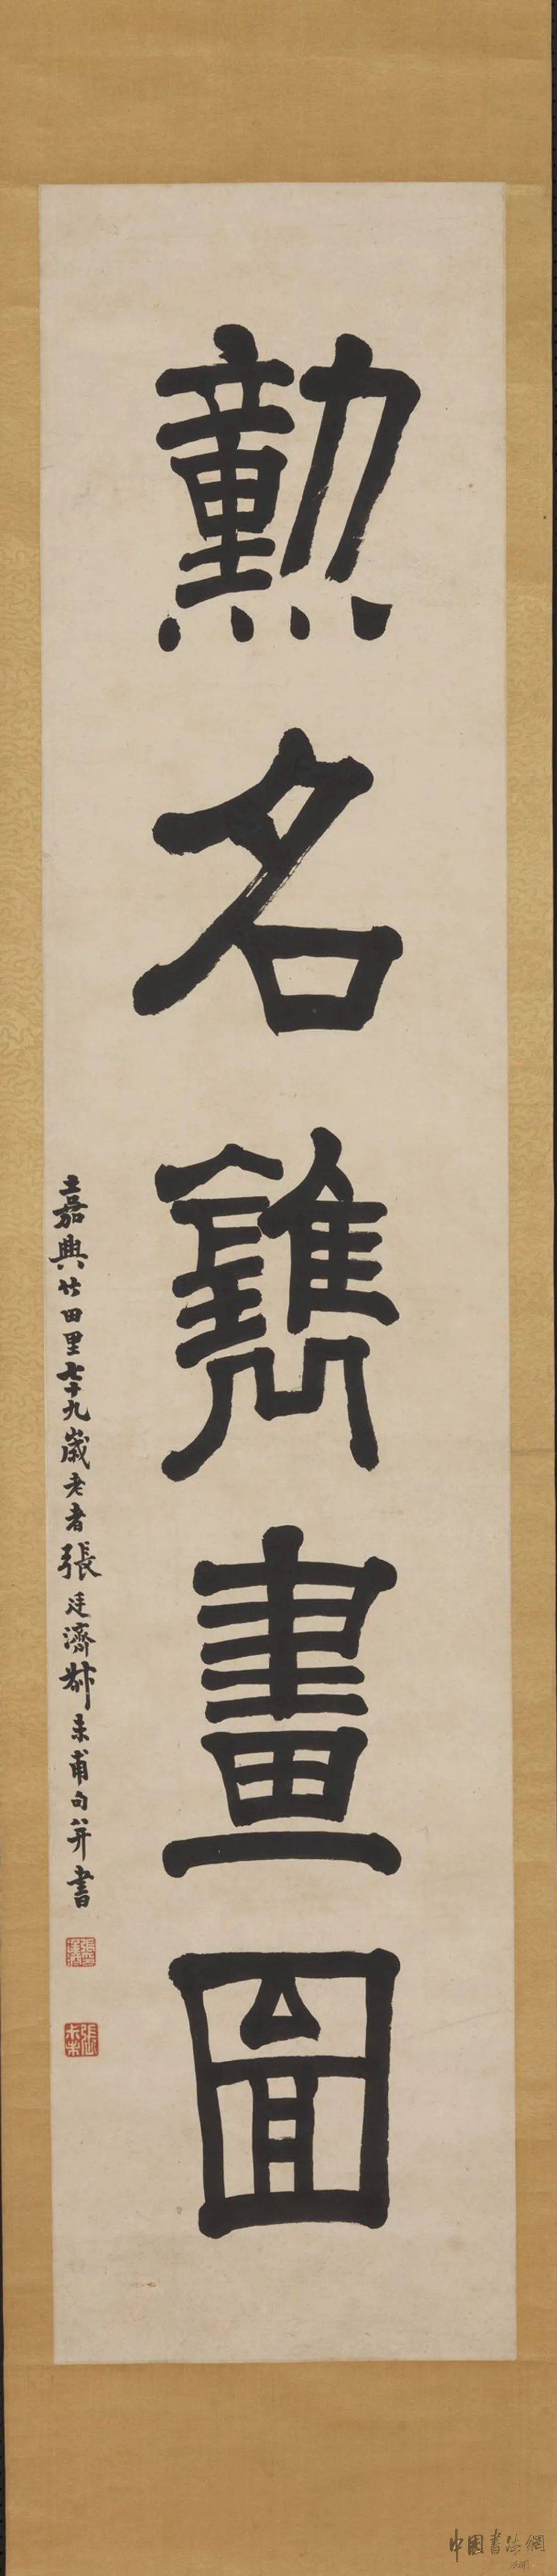 勲名鐫畫圖
嘉興竹田里七十九歲老者張廷濟叔未甫句并書
張叔未
中國書法網